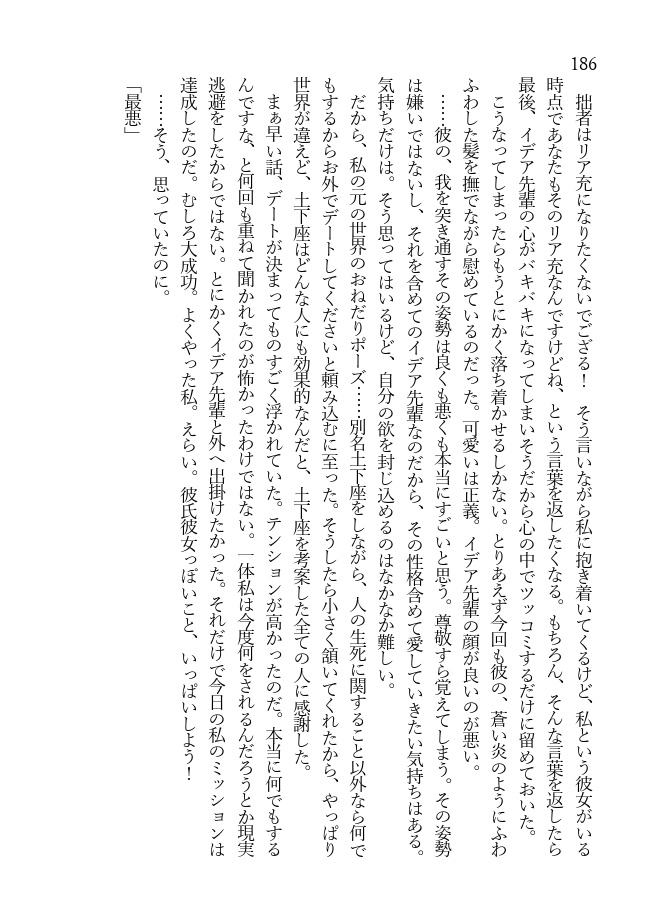 186
　拙者はリア充になりたくないでござる！　そう言いながら私に抱き着いてくるけど、私という彼女がいる
時点であなたもそのリア充なんですけどね、という言葉を返したくなる。もちろん、そんな言葉を返したら
最後、イデア先輩の心がバキバキになってしまいそうだから心の中でツッコミするだけに留めておいた。
　こうなってしまったらもうとにかく落ち着かせるしかない。とりあえず今回も彼の、蒼い炎のようにふわ
ふわした髪を撫でながら慰めているのだった。可愛いは正義。イデア先輩の顔が良いのが悪い。
　……彼の、我を突き通すその姿勢は良くも悪くも本当にすごいと思う。尊敬すら覚えてしまう。その姿勢
は嫌いではないし、それを含めてのイデア先輩なのだから、その性格含めて愛していきたい気持ちはある。
気持ちだけは。そう思ってはいるけど、自分の欲を封じ込めるのはなかなか難しい。
　だから、私の元の世界のおねだりポーズ……別名土下座をしながら、人の生死に関すること以外なら何で
もするからお外でデートしてくださいと頼み込むに至った。そうしたら小さく頷いてくれたから、やっぱり
世界が違えど、土下座はどんな人にも効果的なんだと、土下座を考案した全ての人に感謝した。
　まぁ早い話、デートが決まってものすごく浮かれていた。テンションが高かったのだ。本当に何でもする
んですな、と何回も重ねて聞かれたのが怖かったわけではない。一体私は今度何をされるんだろうとか現実
逃避をしたからではない。とにかくイデア先輩と外へ出掛けたかった。それだけで今日の私のミッションは
達成したのだ。むしろ大成功。よくやった私。えらい。彼氏彼女っぽいこと、いっぱいしよう！
　……そう、思っていたのに。
「最悪」